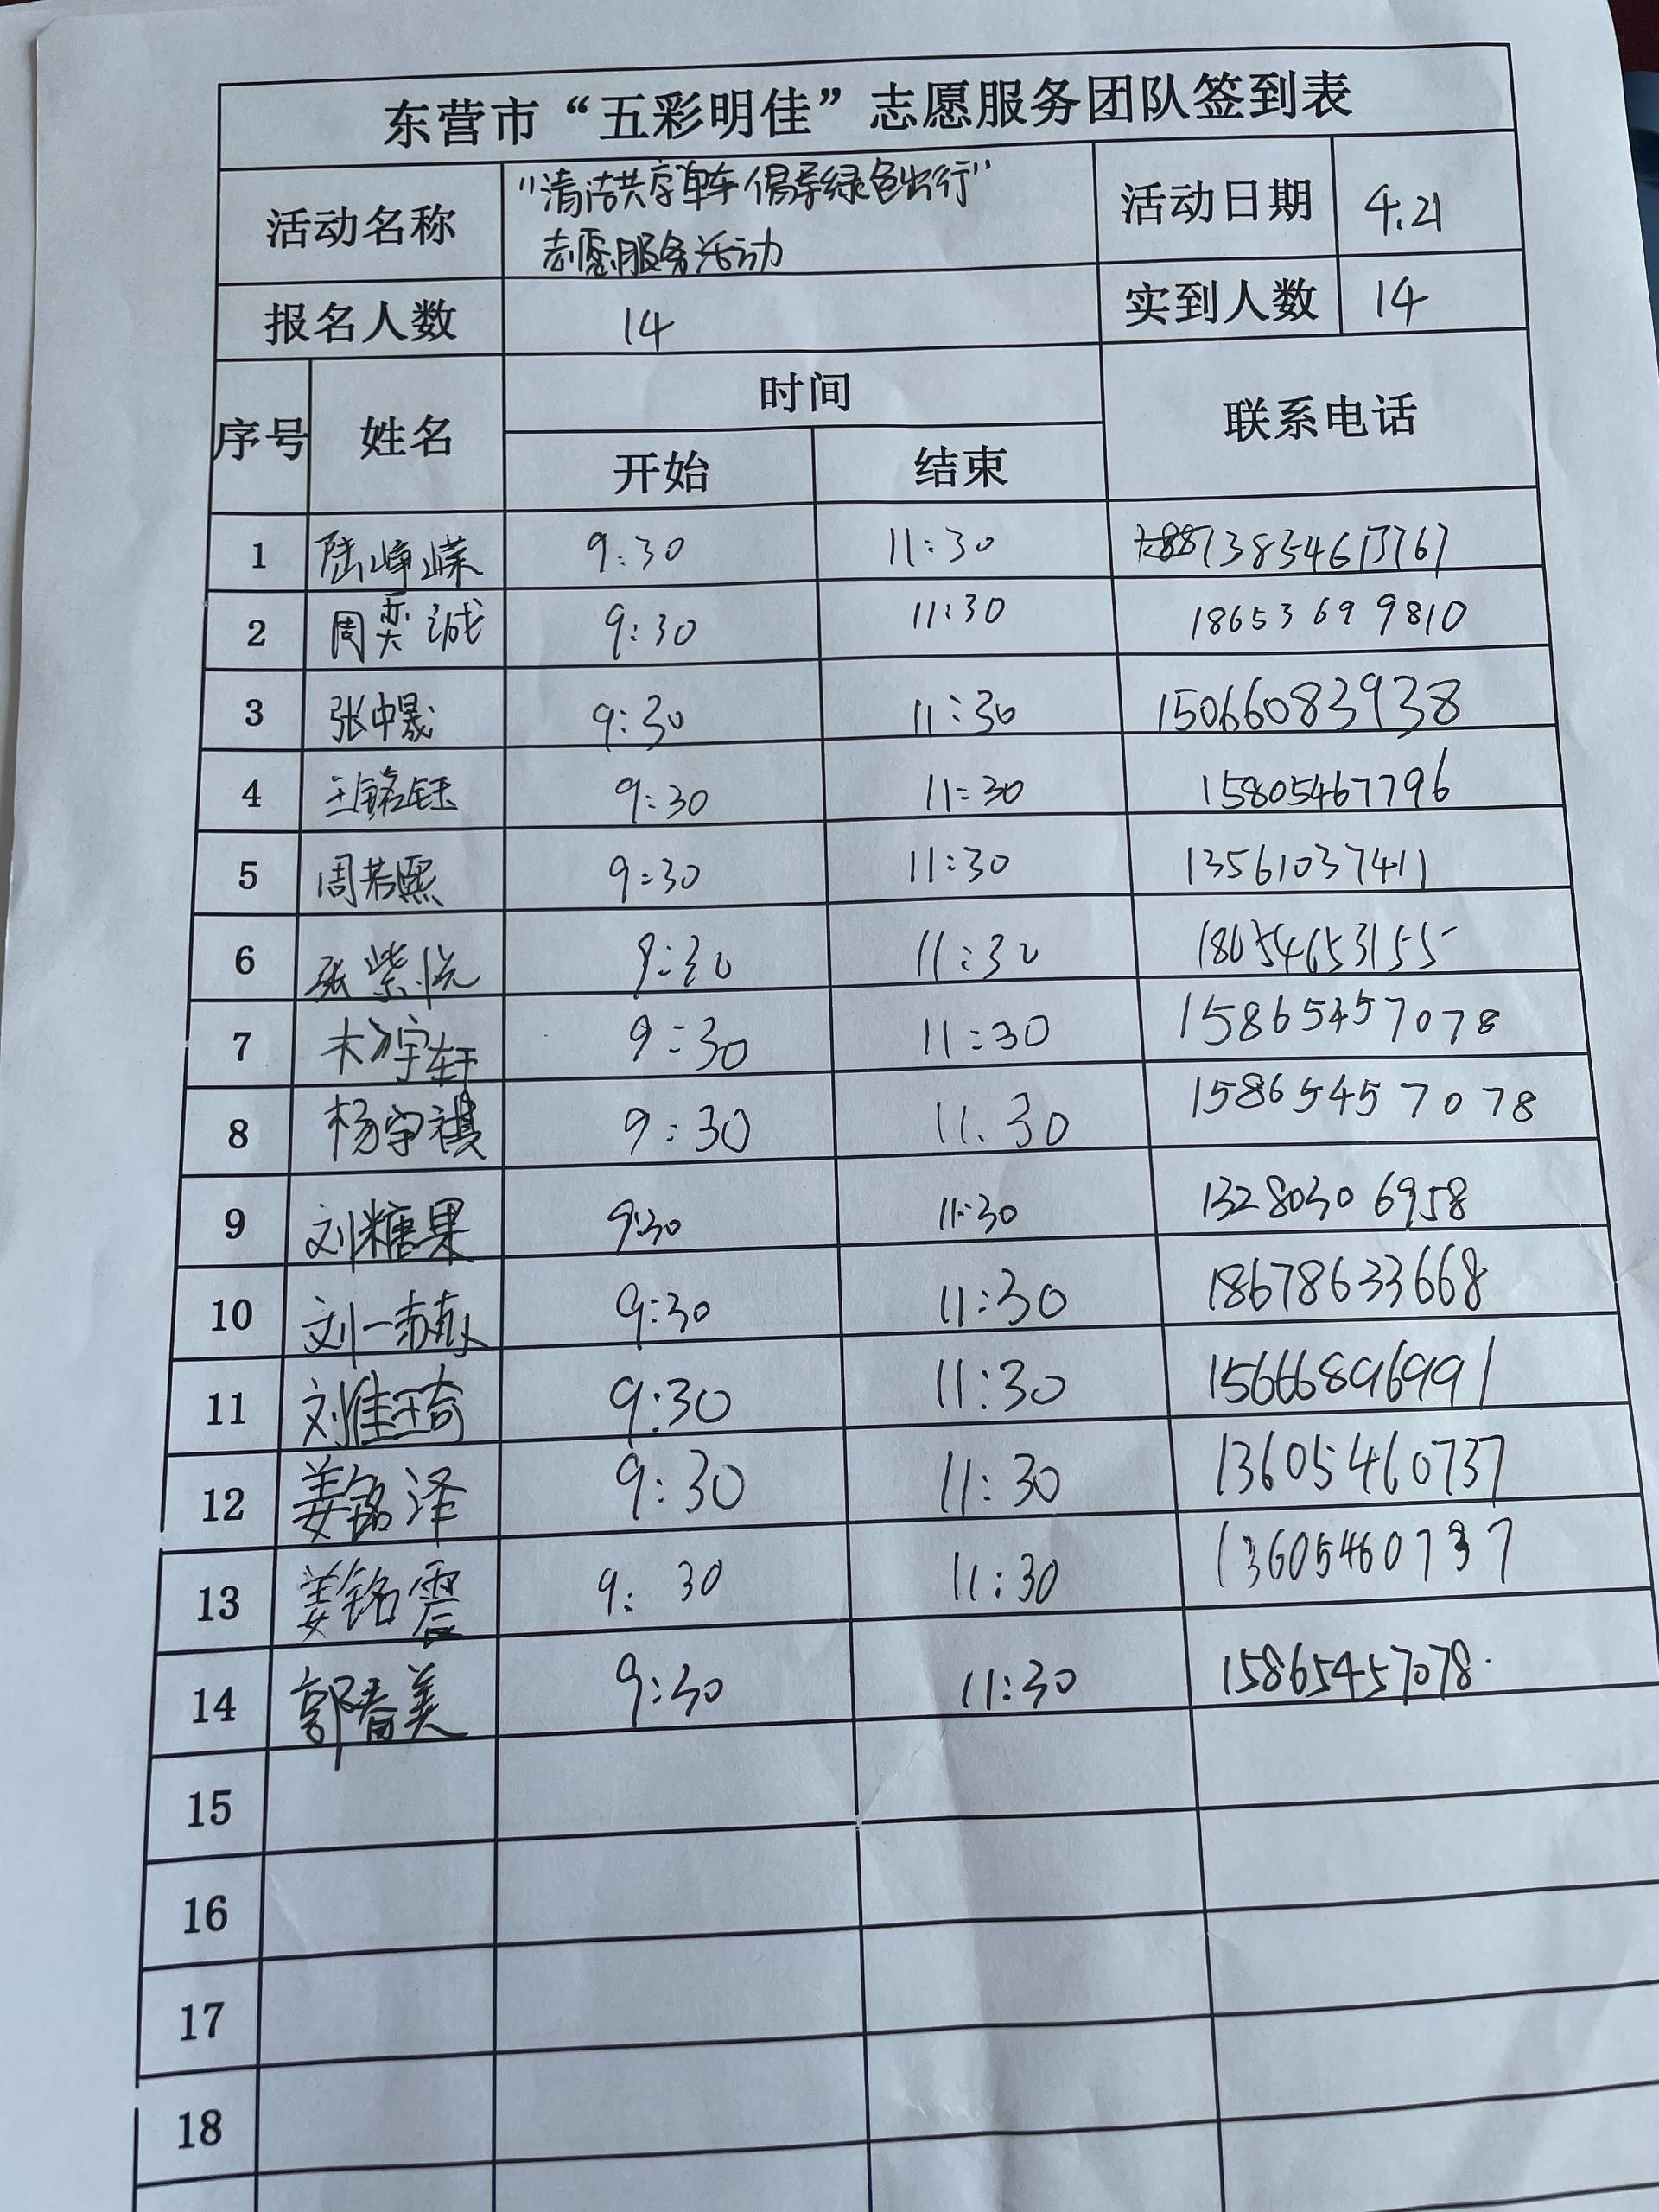 东营市“五彩明佳”志愿服务团队签到表
活动名称 “清洁共享单车 倡导绿色出行” 活动日期 4.21
志愿服务活动
报名人数 14 实到人数 14
序号 姓名 时间 联系电话
开始 结束
1 陆峥嵘 9:30 11:30 13854613767
2 周奕诚 9:30 11:30 18653699810
3 张中晟 9:30 11:30 15066083938
4 王铭钰 9:30 11:30 15805467796
5 周若熙 9:30 11:30 13561037411
6 张紫悦 9:30 11:30 18654653155
7 宇轩 9:30 11:30 15865457078
8 杨宇祺 9:30 11.30 15865457078
9 刘糖果 9:30 11:30 13280306958
10 刘一赫 9:30 11:30 18678633668
11 刘佳琦 9:30 11:30 15666896991
12 姜铭泽 9:30 11:30 13605460737
13 姜铭震 9:30 11:30 13605460737
14 郭春美 9:30 11:30 15865457078.
15
16
17
18